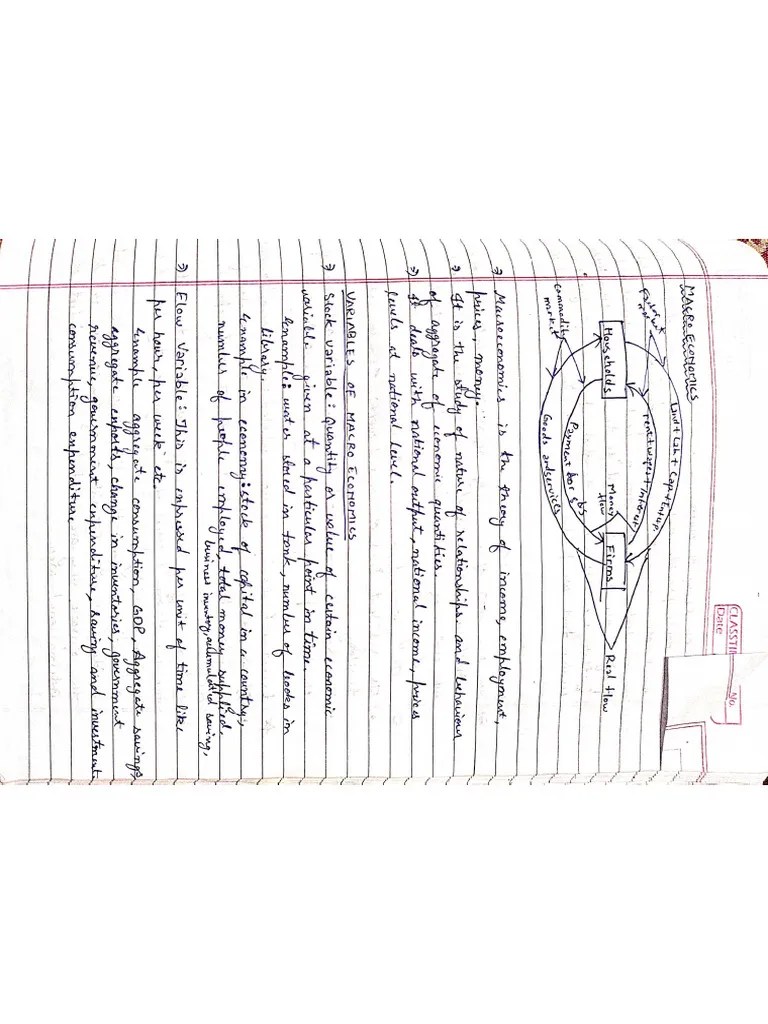 CLASSTI
Date
No.
MACRO ECONOMICS
Land + Lab + Cap + Entrp.
Factor
market
rent + wages + Interest
Money
flow
Households
Firms
Real flow
Payment for g & s
Goods and services
commodity
market
→ Macroeconomics is the theory of income, employment,
prices, money.
→ It is the study of nature of relationships and behaviour
of aggregate of economic quantities.
→ It deals with national output, national income, prices
levels at national level.
VARIABLES OF MACRO ECONOMICS
→ Stock variable: Quantity or value of certain economic
variable given at a particular point in time.
Example: water stored in tank, number of books in
library.
Example in economy: stock of capital in a country,
number of people employed, total money supplied,
business inventory, accumulated saving,
→ Flow Variable: This is expressed per unit of time like
per hour, per week etc.
Example aggregate consumption, GDP, Aggregate savings,
aggregate exports, change in inventories, government
revenue, government expenditure, saving and investment
consumption expenditure